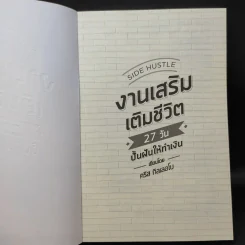 SIDE HUSTLE
งานเสริม
เติมชีวิต
27 วัน
ปั้นฝันให้ทำเงิน
เขียนโดย
คริส กิลเลอโบ